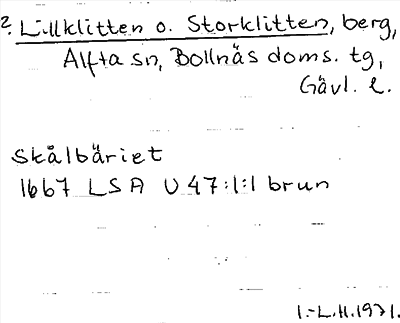 2. Lillklitten o. Storklitten, berg,
Alfta sn, Bollnäs doms. tg,
Gävl. l.
Skålbäriet
1667 LSA U 47:1:1 brun
I.-L.H.1971.